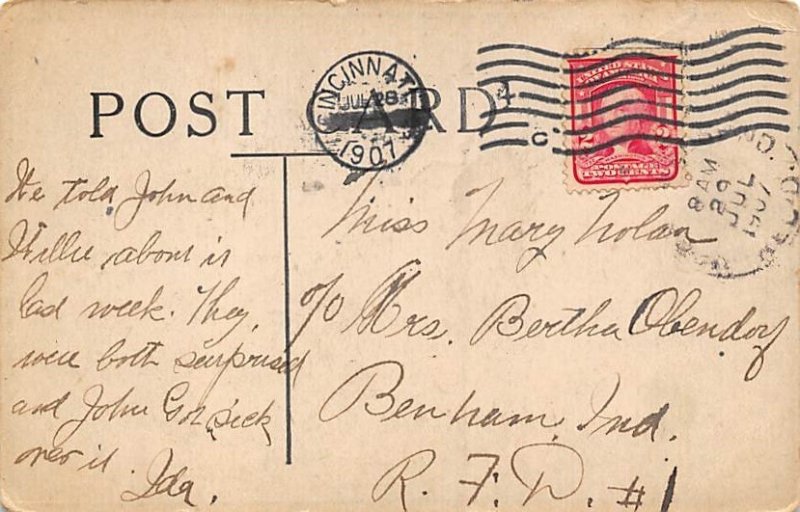 POST CARD
CINCINNATI
JUL 28
1907
4
C
UNITED STATES
OF AMERICA
2 2
POSTAGE
TWO CENTS
8 AM
29
JUL
1907
We told John and
Willie about it
last week. They
were both surprised
and John Got sick
over it.
Ida.
Miss Mary Nolan
c/o Mrs. Bertha Obendorf
Benham, Ind.
R. F. D. #1